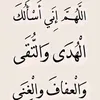 اللَّهُمَّ إِنِّي أَسْأَلُكَ
الْهُدَى وَالتُّقَى
وَالْعَفَافَ وَالْغِنَى